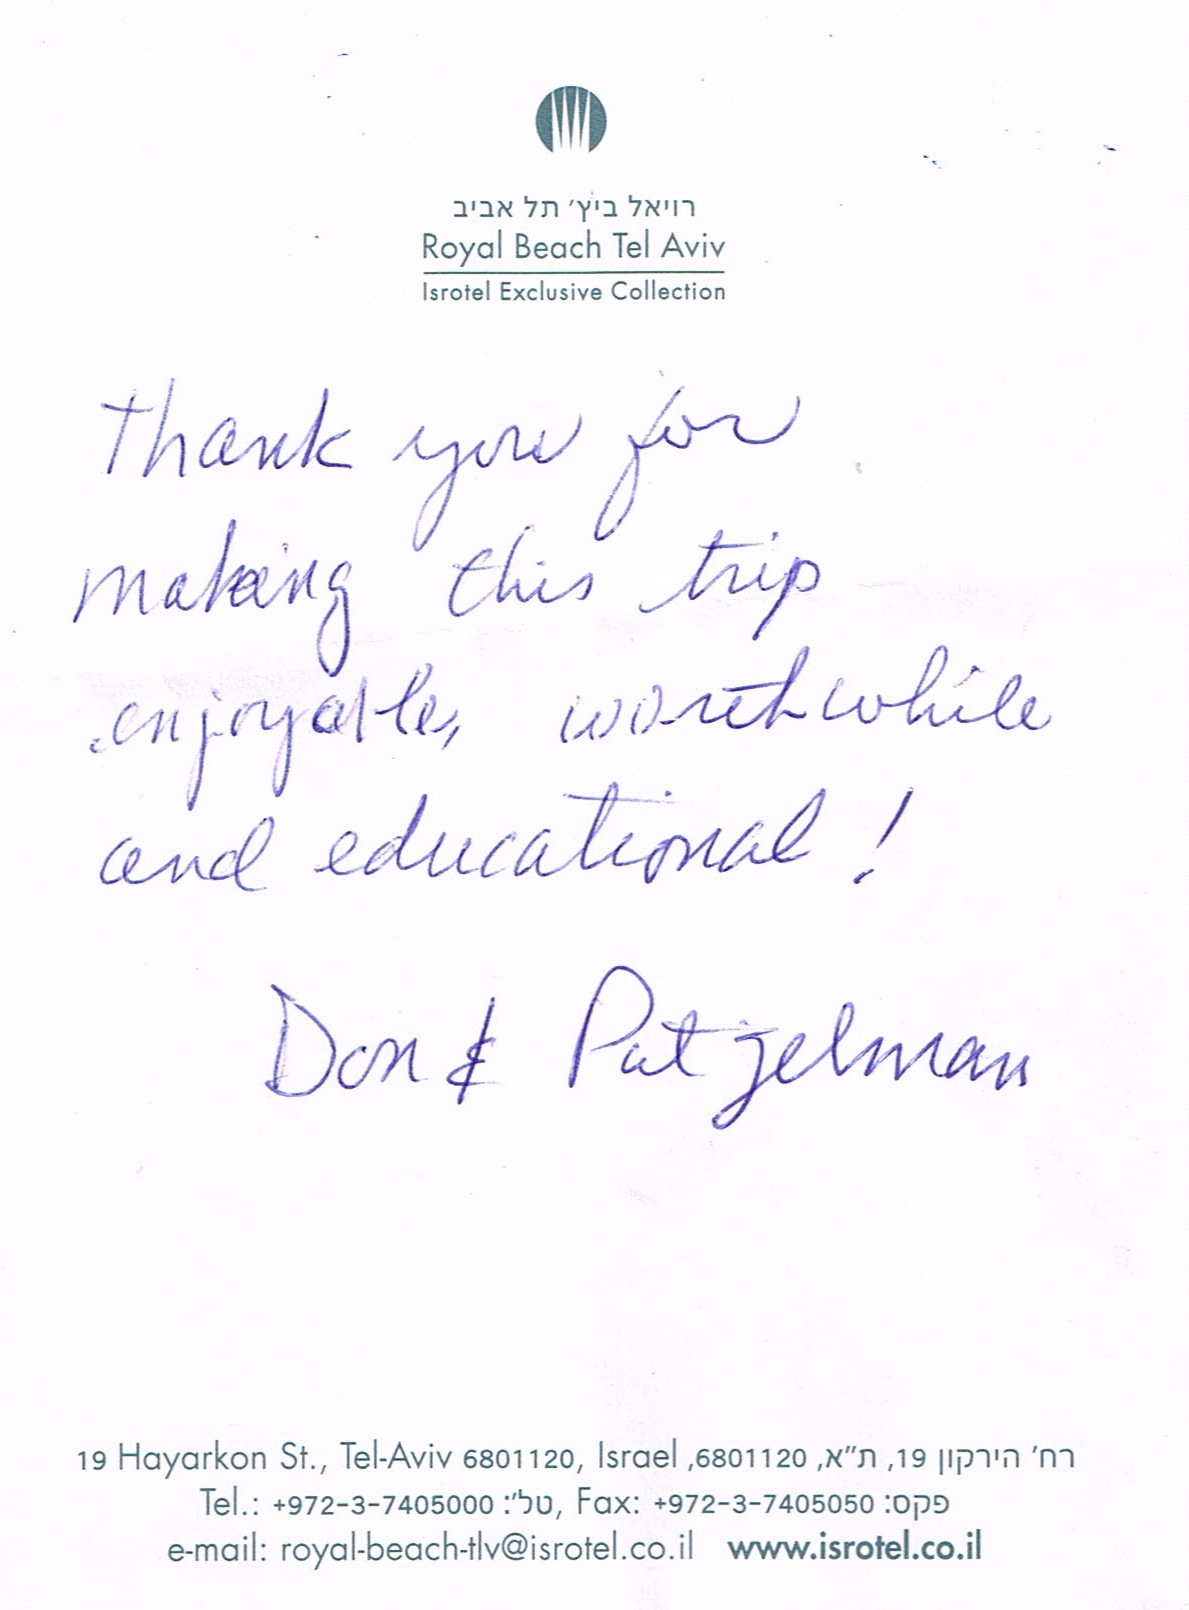 רויאל ביץ' תל אביב
Royal Beach Tel Aviv
Isrotel Exclusive Collection
Thank you for
making this trip
enjoyable, worthwhile
and educational!
Don & Pat Zelman
19 Hayarkon St., Tel-Aviv 6801120, Israel רח' הירקון 19, ת"א, 6801120,
Tel.: +972-3-7405000 :'טל, Fax: +972-3-7405050 :פקס
e-mail: royal-beach-tlv@isrotel.co.il www.isrotel.co.il